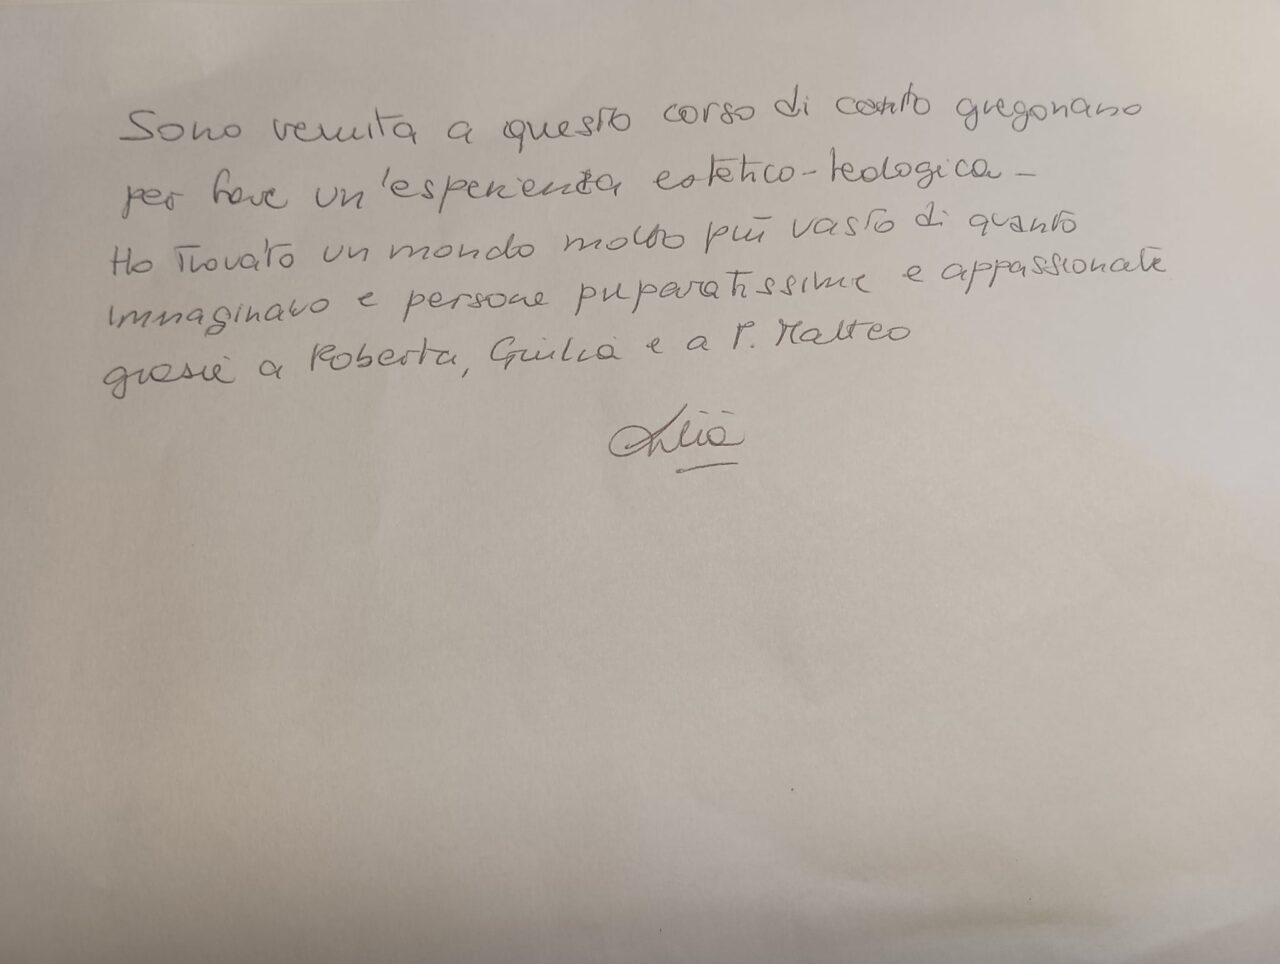 Sono venuta a questo corso di canto gregoriano
per fare un'esperienza estetico-teologica -
Ho trovato un mondo molto più vasto di quanto
immaginavo e persone preparatissime e appassionate
grazie a Roberta, Giulia e a P. Matteo